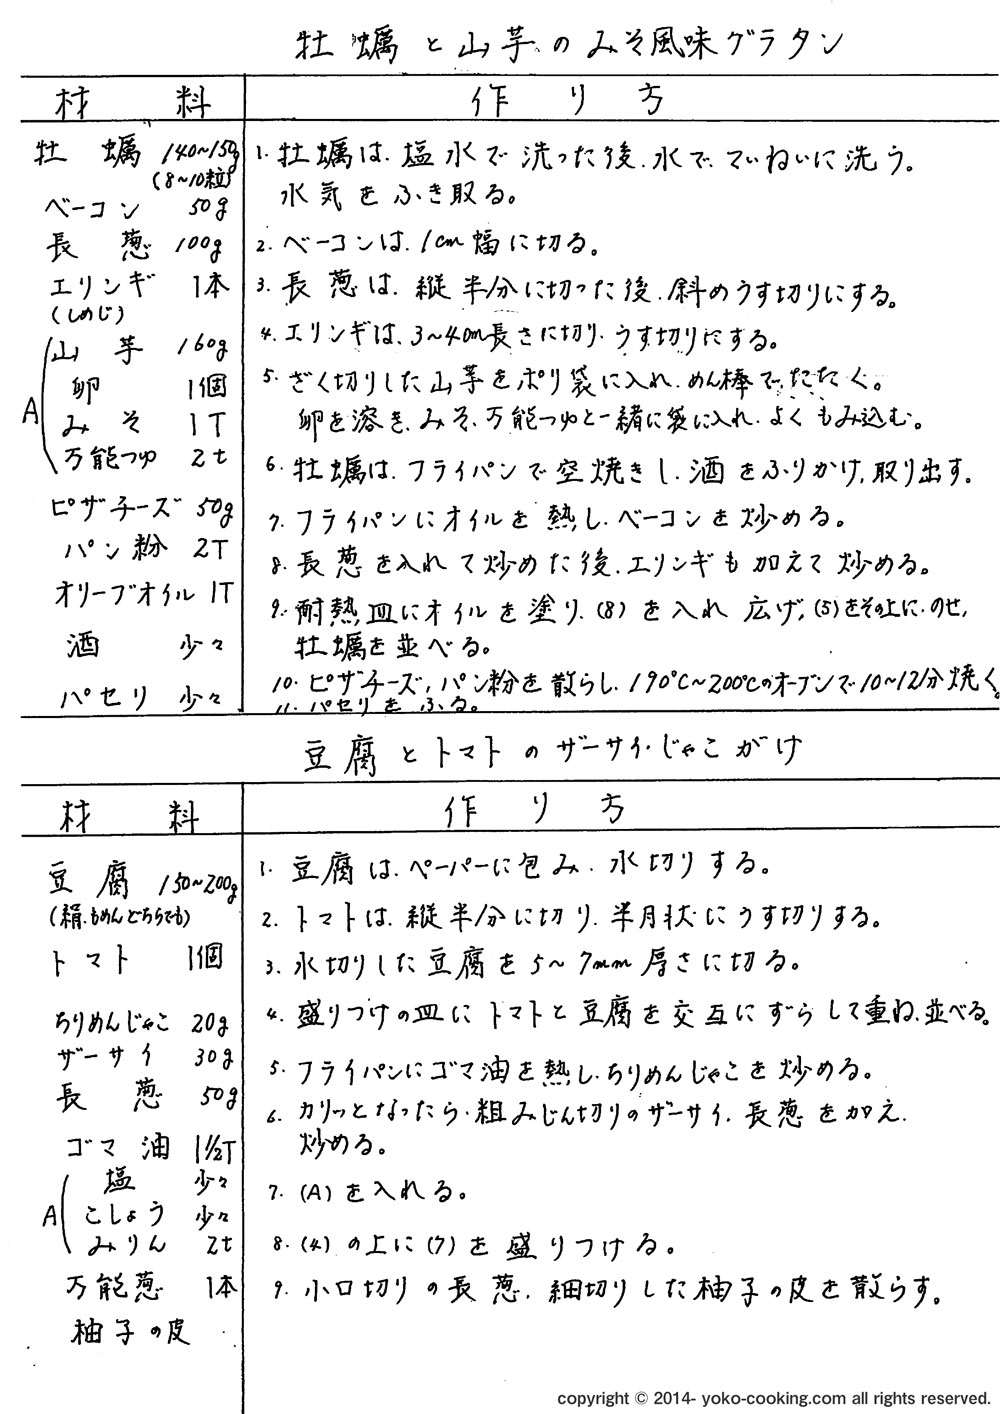 牡蠣と山芋のみそ風味グラタン
材料
作り方
牡蠣 140~150g
(8~10粒)
ベーコン 50g
長葱 100g
エリンギ 1本
(しめじ)
A
山芋 160g
卵 1個
みそ 1T
万能つゆ 2t
ピザチーズ 50g
パン粉 2T
オリーブオイル 1T
酒 少々
パセリ 少々
1. 牡蠣は、塩水で洗った後、水で、ていねいに洗う。
水気をふき取る。
2. ベーコンは、1cm幅に切る。
3. 長葱は、縦半分に切った後、斜めうす切りにする。
4. エリンギは、3~4cm長さに切り、うす切りにする。
5. ざく切りした山芋をポリ袋に入れ、めん棒で、たたく。
卵を溶き、みそ、万能つゆと一緒に袋に入れ、よくもみ込む。
6. 牡蠣は、フライパンで空焼きし、酒をふりかけ、取り出す。
7. フライパンにオイルを熱し、ベーコンを炒める。
8. 長葱を入れて炒めた後、エリンギも加えて炒める。
9. 耐熱皿にオイルを塗り、(8)を入れ広げ、(5)をその上に、のせ、
牡蠣を並べる。
10. ピザチーズ、パン粉を散らし、190℃~200℃のオーブンで10~12分焼く。
11. パセリをふる。
豆腐とトマトのザーサイ・じゃこがけ
材料
作り方
豆腐 150~200g
(絹、もめんどちらでも)
トマト 1個
ちりめんじゃこ 20g
ザーサイ 30g
長葱 50g
ゴマ油 1½T
A
塩 少々
こしょう 少々
みりん 2t
万能葱 1本
柚子の皮
1. 豆腐は、ペーパーに包み、水切りする。
2. トマトは、縦半分に切り、半月状にうす切りする。
3. 水切りした豆腐を5~7mm厚さに切る。
4. 盛りつけの皿にトマトと豆腐を交互にずらして重ね、並べる。
5. フライパンにゴマ油を熱し、ちりめんじゃこを炒める。
6. カリッとなったら、粗みじん切りのザーサイ、長葱を加え、
炒める。
7. (A)を入れる。
8. (4)の上に(7)を盛りつける。
9. 小口切りの長葱、細切りした柚子の皮を散らす。
copyright © 2014- yoko-cooking.com all rights reserved.